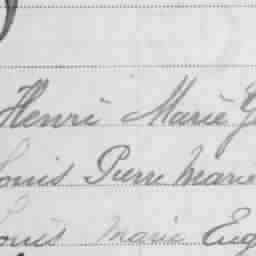 Henri Marie
Louis Pierre Marie
Louis Marie Eug